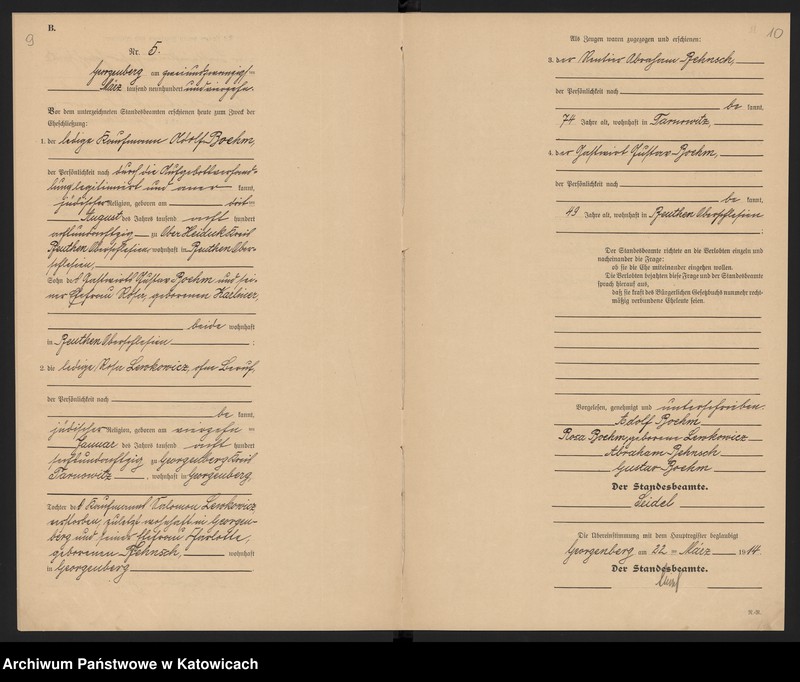 B.
9
Nr. 5.
Georgenberg am zweiundzwanzigsten
März tausend neunhundert und vierzehn.
Vor dem unterzeichneten Standesbeamten erschienen heute zum Zweck der
Eheschließung:
1. der ledige Kaufmann Adolf Boehm,
der Persönlichkeit nach durch die Aufgebotsverhand-
lung legitimiert und aner kannt,
jüdischer Religion, geboren am
August des Jahres tausend acht hundert
achtundachtzig zu Ober Heiduk Kreis
Beuthen Oberschlesien, wohnhaft in Beuthen Ober-
schlesien,
Sohn des Gastwirts Gustav Boehm und sei-
ner Ehefrau Rosa, geborenen
beide wohnhaft
in Beuthen Oberschlesien ;
2. die ledige Rosa Lewkowicz, ohne Beruf,
der Persönlichkeit nach
be kannt,
jüdischer Religion, geboren am vierzehn ten
Januar des Jahres tausend acht hundert
sechsundachtzig zu Georgenberg Kreis
Tarnowitz , wohnhaft in Georgenberg,
Tochter des Kaufmanns Salomon Lewkowicz
verstorben, zuletzt wohnhaft in Georgen-
berg und seiner Ehefrau Charlotte,
geborenen Rehnsch, wohnhaft
in Georgenberg
10
Als Zeugen waren zugezogen und erschienen:
3. der Rentier Abraham Rehnsch,
der Persönlichkeit nach
be kannt,
74 Jahre alt, wohnhaft in Tarnowitz,
4. der Gastwirt Gustav Boehm,
der Persönlichkeit nach
be kannt,
49 Jahre alt, wohnhaft in Beuthen Oberschlesien
;
Der Standesbeamte richtete an die Verlobten einzeln und
nacheinander die Frage:
ob sie die Ehe miteinander eingehen wollen.
Die Verlobten bejahten diese Frage und der Standesbeamte
sprach hierauf aus,
daß sie kraft des Bürgerlichen Gesetzbuchs nunmehr recht-
mäßig verbundene Eheleute seien.
Vorgelesen, genehmigt und unterschrieben.
Adolf Boehm
Rosa Boehm, geborene Lewkowicz
Abraham Rehnsch
Gustav Boehm
Der Standesbeamte.
Seidel
Die Übereinstimmung mit dem Hauptregister beglaubigt
Georgenberg am 22 ten März 1914.
Der Standesbeamte.
Archiwum Państwowe w Katowicach